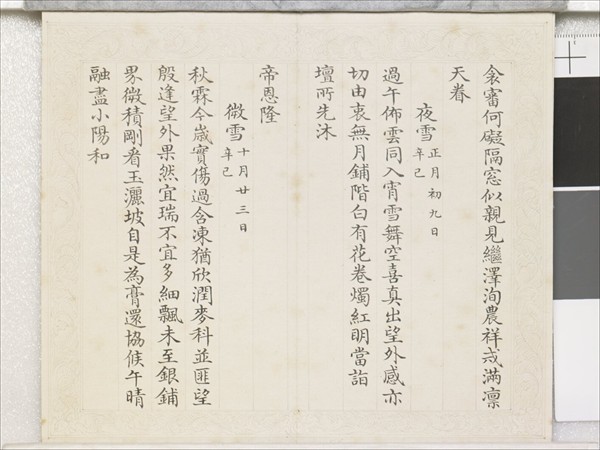 衾審何礙隔窓似親見繼澤洵農祥戒滿凛
天眷
夜雪正月初九日
辛巳
過午佈雲同入宵雪舞空喜真出望外感亦
切由衷無月鋪階白有花卷燭紅明當詣
壇所先沐
帝恩隆
微雪十月廿三日
辛巳
秋霖今歲實傷過含凍猶欣潤麥科並匪望
殷逢望外果然宜瑞不宜多細飄未至銀鋪
界微積剛看玉灑坡自是為膏還協候午晴
融盡小陽和